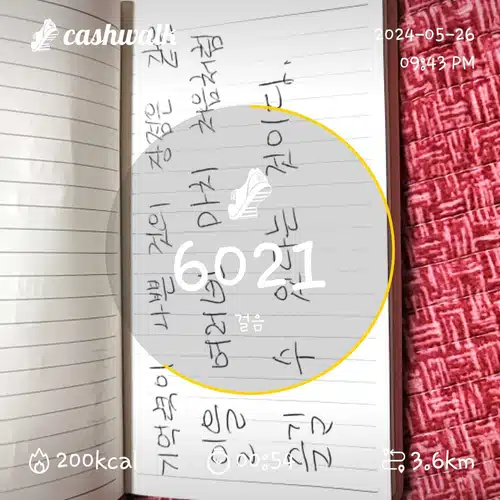 cashwalk
2024-05-26
09:43 PM
기억력이 나쁜 것의 장점은
일을 여러번, 마치 처음처럼
즐길 수 있다는 것이다.
6021
걸음
200kcal
00:54
3.6km